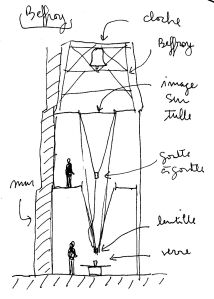 Beffroy
cloche
Beffroy
image
sur
tulle
goutte
à goutte
mur
lentille
verre